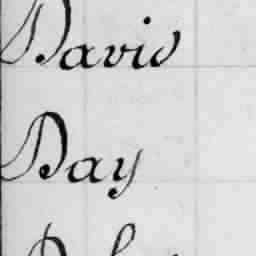 David
Day